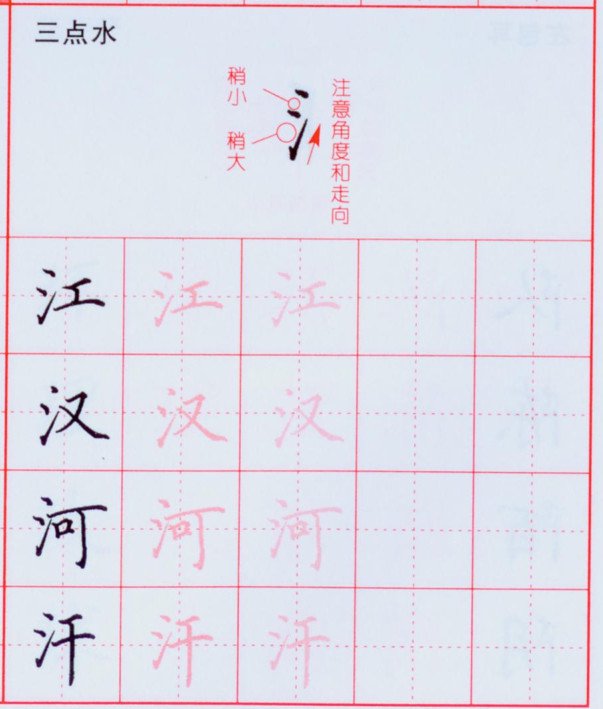 三点水
稍小
稍大
注意角度和走向
氵
江 江 江
汉 汉 汉
河 河 河
汗 汗 汗